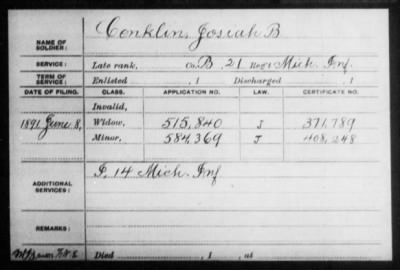 NAME OF SOLDIER: Conklin, Josiah B
SERVICE: Late rank, Co. B, 21 Reg't Mich. Inf.
TERM OF SERVICE: Enlisted , 1 Discharged , 1
DATE OF FILING. CLASS. APPLICATION NO. LAW. CERTIFICATE NO.
Invalid,
1891 June 8, Widow, 515,840 J 371,789
Minor, 584,369 J 408,248
ADDITIONAL SERVICES: F, 14 Mich. Inf
REMARKS:
Died , 1 , at